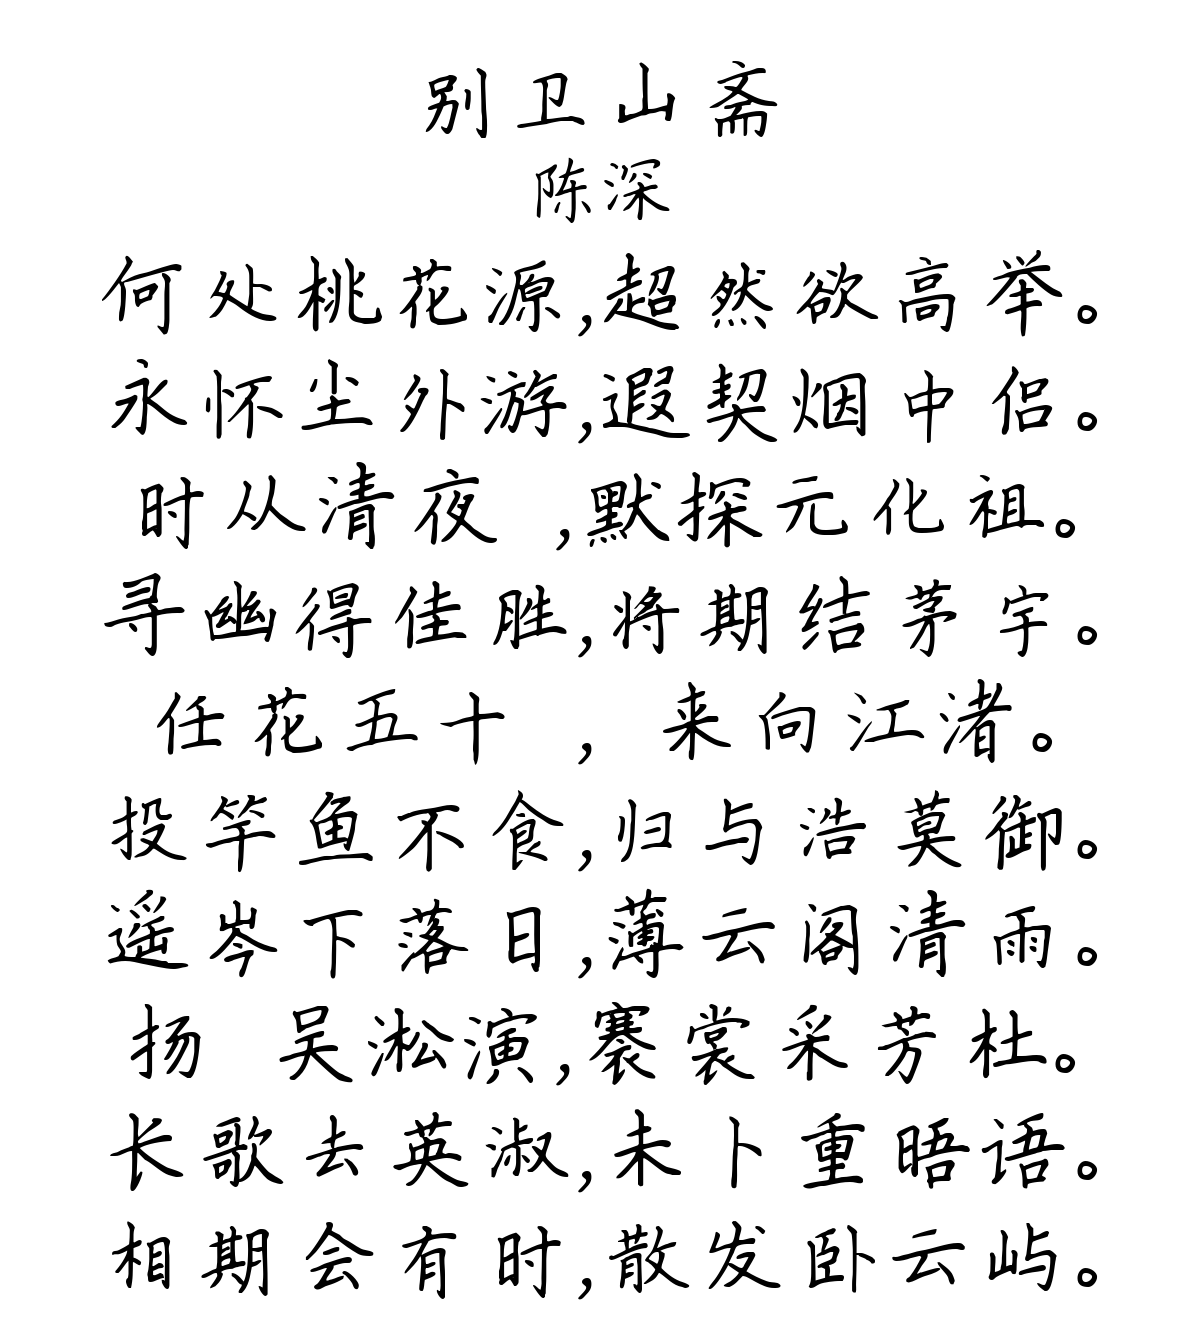 别卫山斋
陈深
何处桃花源,超然欲高举。
永怀尘外游,遐契烟中侣。
时从清夜 ,默探元化祖。
寻幽得佳胜,将期结茅宇。
任花五十 , 来向江渚。
投竿鱼不食,归与浩莫御。
遥岑下落日,薄云阁清雨。
扬 吴淞演,褰裳采芳杜。
长歌去英淑,未卜重晤语。
相期会有时,散发卧云屿。